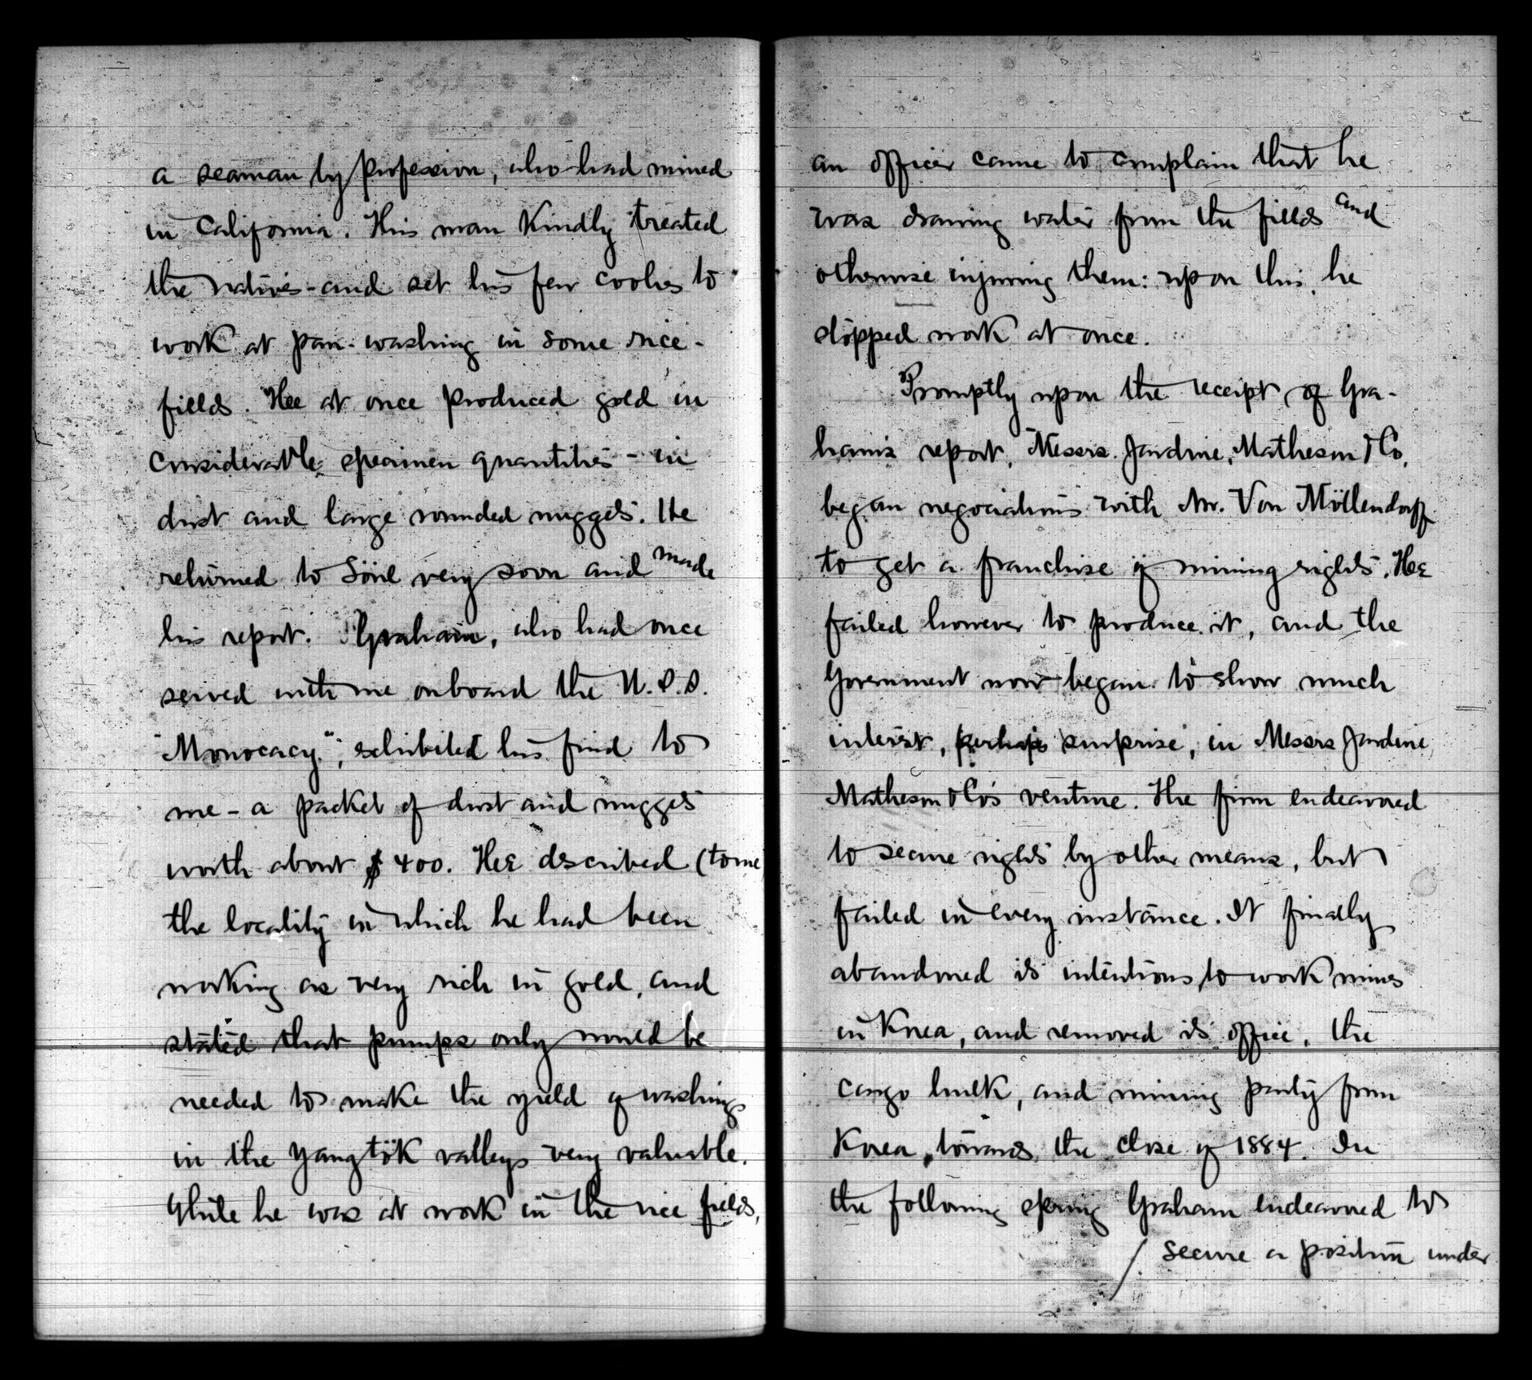 a seaman by profession, who had mined
in California. This man kindly treated
the natives - and set his few coolies to
work at pan-washing in some rice-
fields. Hee at once produced gold in
considerable specimen quantities - in
dust and large rounded nuggets. He
returned to Söul very soon and made
his report. Graham, who had once
served with me onboard the U.S.S.
"Monocacy", exhibited his find to
me - a packet of dust and nuggets
worth about $400. Hee described (to me
the locality in which he had been
working as very rich in gold, and
stated that pumps only would be
needed to make the yield of washings
in the Yangtök valleys very valuable.
While he was at work in the rice fields,
an officer came to complain that he
was draining water from the fields and
otherwise injuring them: upon this, he
stopped work at once.
Promptly upon the receipt of Gra-
ham's report, Messrs. Jardine, Matheson & Co,
began negociations with Mr. Von Möllendorff
to get a franchise of mining rights. Hee
failed however to produce it, and the
Government now began to show much
interest, perhaps surprise, in Messrs Jardine,
Matheson & Co's venture. The firm endeavored
to secure rights by other means, but
failed in every instance. It finally
abandoned its intentions to work mines
in Korea, and removed its office, the
cargo hulk, and mining party from
Korea, towards the close of 1884. In
the following spring Graham endeavored to
/ secure a position under